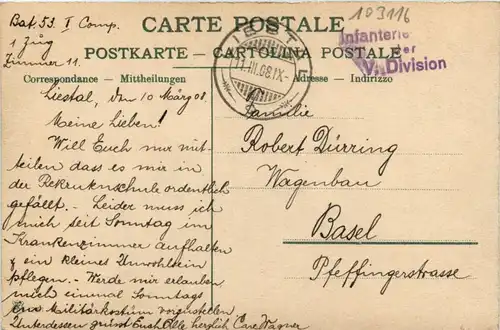 103116
Bat. 53. I Comp.
1 Zug
Zimmer 11.
CARTE POSTALE
POSTKARTE – CARTOLINA POSTALE
Correspondance – Mittheilungen
Adresse – Indirizzo
LIESTAL
11.III.08.IX-
Infanterie
der
V. Division
Liestal, den 10 März 08.
Meine Lieben!
Will Euch nur mit-
teilen dass es mir in
der Rekrutenschule ordentlich
gefällt. – Leider muss ich
mich seit Sonntag im
Krankenzimmer aufhalten
& ein kleines Unwohlsein
pflegen. – Werde mir erlauben
mich einmal Sonntags
im Militärkostüm vorzustellen
Unterdessen grüsst Euch Alle herzlich Carl Wagner
Familie
Robert Dürring
Wagenbau
Basel
Pfeffingerstrasse